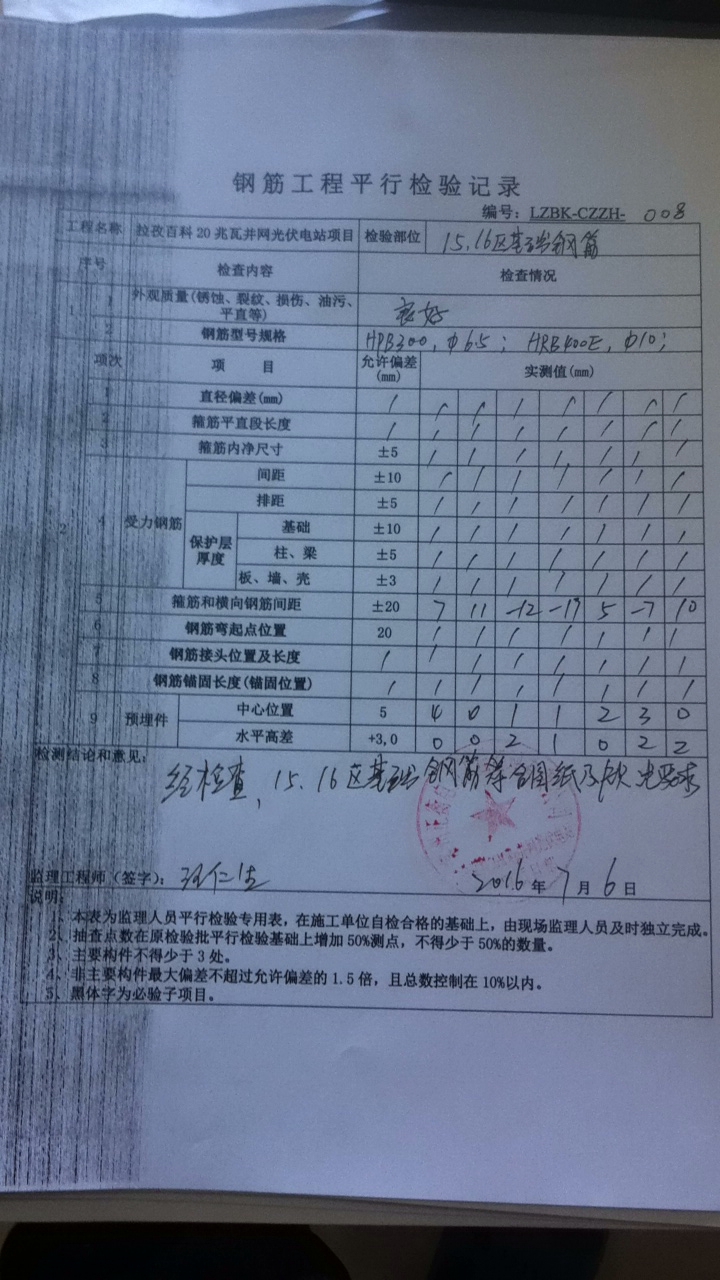 钢筋工程平行检验记录
编号：LZBK-CZZH- 008
工程名称 拉孜百科20兆瓦并网光伏电站项目 检验部位 15.16区基础钢筋
序号 检查内容 检查情况
1 1 外观质量(锈蚀、裂纹、损伤、油污、平直等) 良好
2 钢筋型号规格 HPB300，Φ6.5； HRB400E，Φ10；
2 项次 项 目 允许偏差(mm) 实测值(mm)
1 直径偏差(mm) / / / / / / / /
2 箍筋平直段长度 / / / / / / / /
3 箍筋内净尺寸 ±5 / / / / / / /
4 受力钢筋 间距 ±10 / / / / / / /
排距 ±5 / / / / / / /
保护层厚度 基础 ±10 / / / / / / /
柱、梁 ±5 / / / / / / /
板、墙、壳 ±3 / / / / / / /
5 箍筋和横向钢筋间距 ±20 7 11 -12 -17 5 -7 10
6 钢筋弯起点位置 20 / / / / / / /
7 钢筋接头位置及长度 / / / / / / / /
8 钢筋锚固长度(锚固位置) / / / / / / / /
9 预埋件 中心位置 5 4 0 1 1 2 3 0
水平高差 +3,0 0 0 2 1 0 2 2
检测结论和意见：
经检查，15.16区基础钢筋符合图纸及规范要求
监理工程师（签字）： 2016年7月6日
说明：
1、本表为监理人员平行检验专用表，在施工单位自检合格的基础上，由现场监理人员及时独立完成。
2、抽查点数在原检验批平行检验基础上增加50%测点，不得少于50%的数量。
3、主要构件不得少于3处。
4、非主要构件最大偏差不超过允许偏差的1.5倍，且总数控制在10%以内。
5、黑体字为必验子项目。